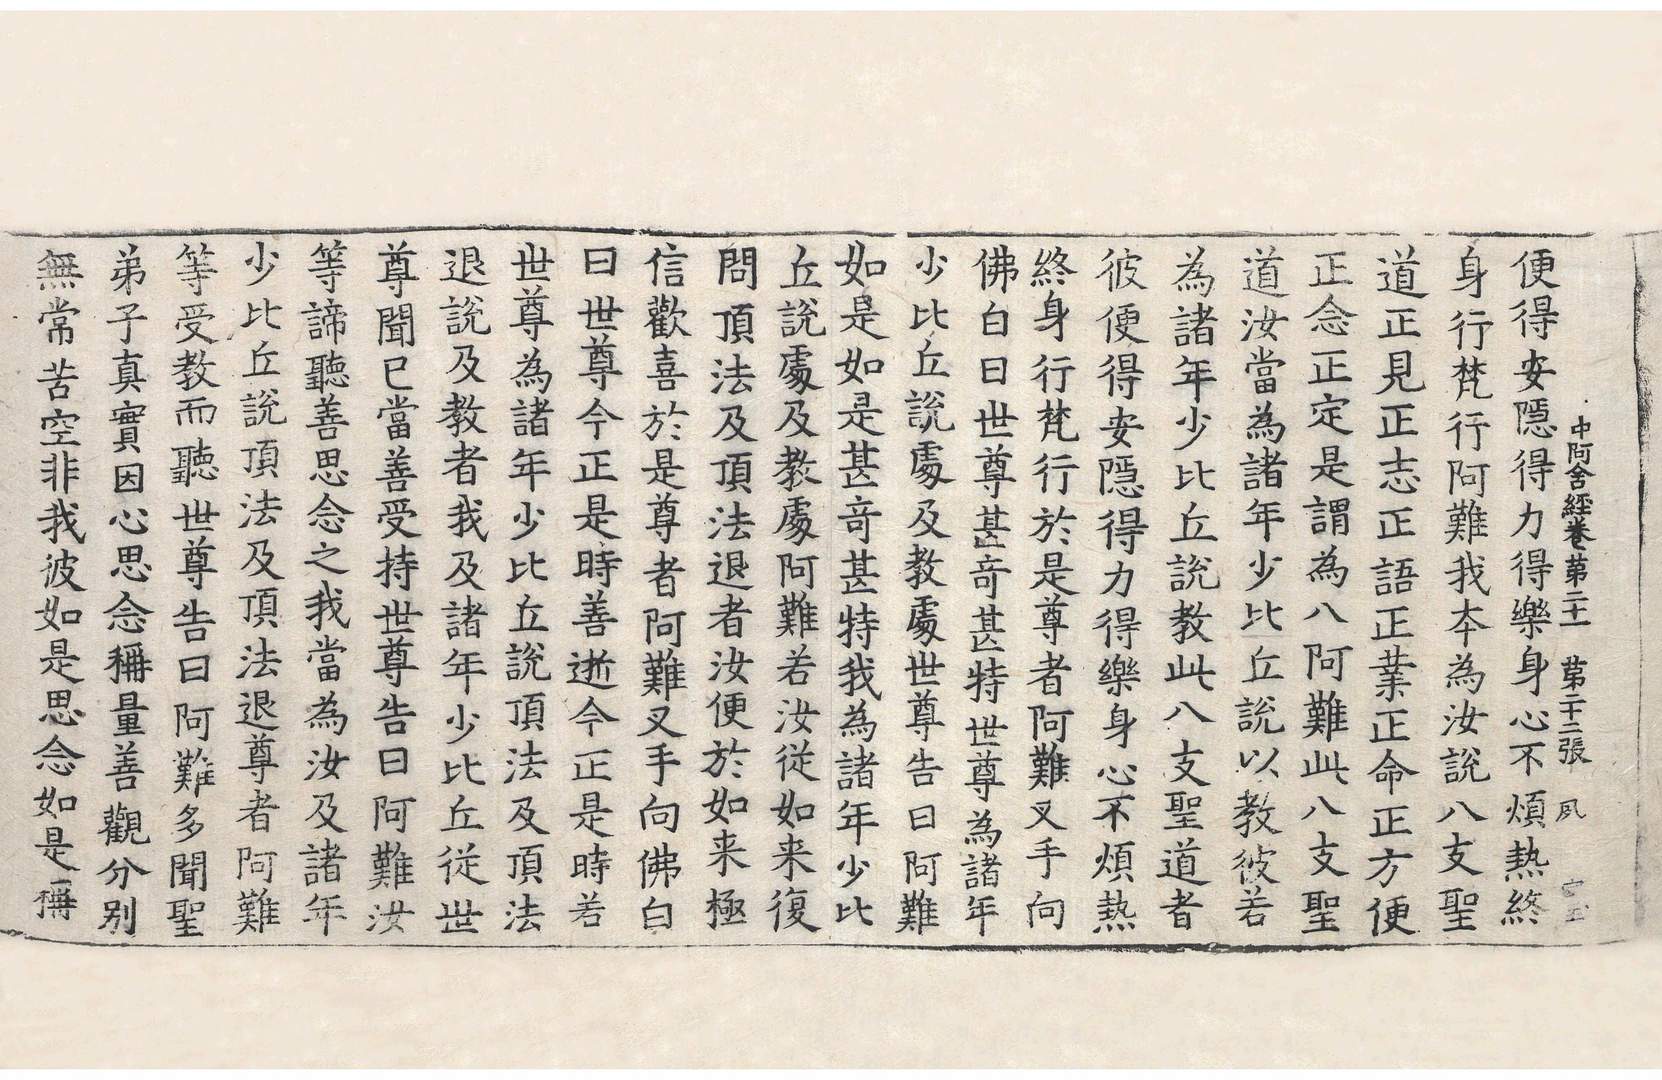 中阿含經卷第二十一 第二十三張 夙
便得安隱得力得樂身心不煩熱終
身行梵行阿難我本為汝說八支聖
道正見正志正語正業正命正方便
正念正定是謂為八阿難此八支聖
道汝當為諸年少比丘說以教彼若
為諸年少比丘說教此八支聖道者
彼便得安隱得力得樂身心不煩熱
終身行梵行於是尊者阿難叉手向
佛白曰世尊甚奇甚特世尊為諸年
少比丘說處及教處世尊告曰阿難
如是如是甚奇甚特我為諸年少比
丘說處及教處阿難若汝從如来復
問頂法及頂法退者汝便於如来極
信歡喜於是尊者阿難叉手向佛白
曰世尊今正是時善逝今正是時若
世尊為諸年少比丘說頂法及頂法
退說及教者我及諸年少比丘従世
尊聞已當善受持世尊告曰阿難汝
等諦聽善思念之我當為汝及諸年
少比丘說頂法及頂法退尊者阿難
等受教而聽世尊告曰阿難多聞聖
弟子真實因心思念稱量善觀分别
無常苦空非我彼如是思念如是稱